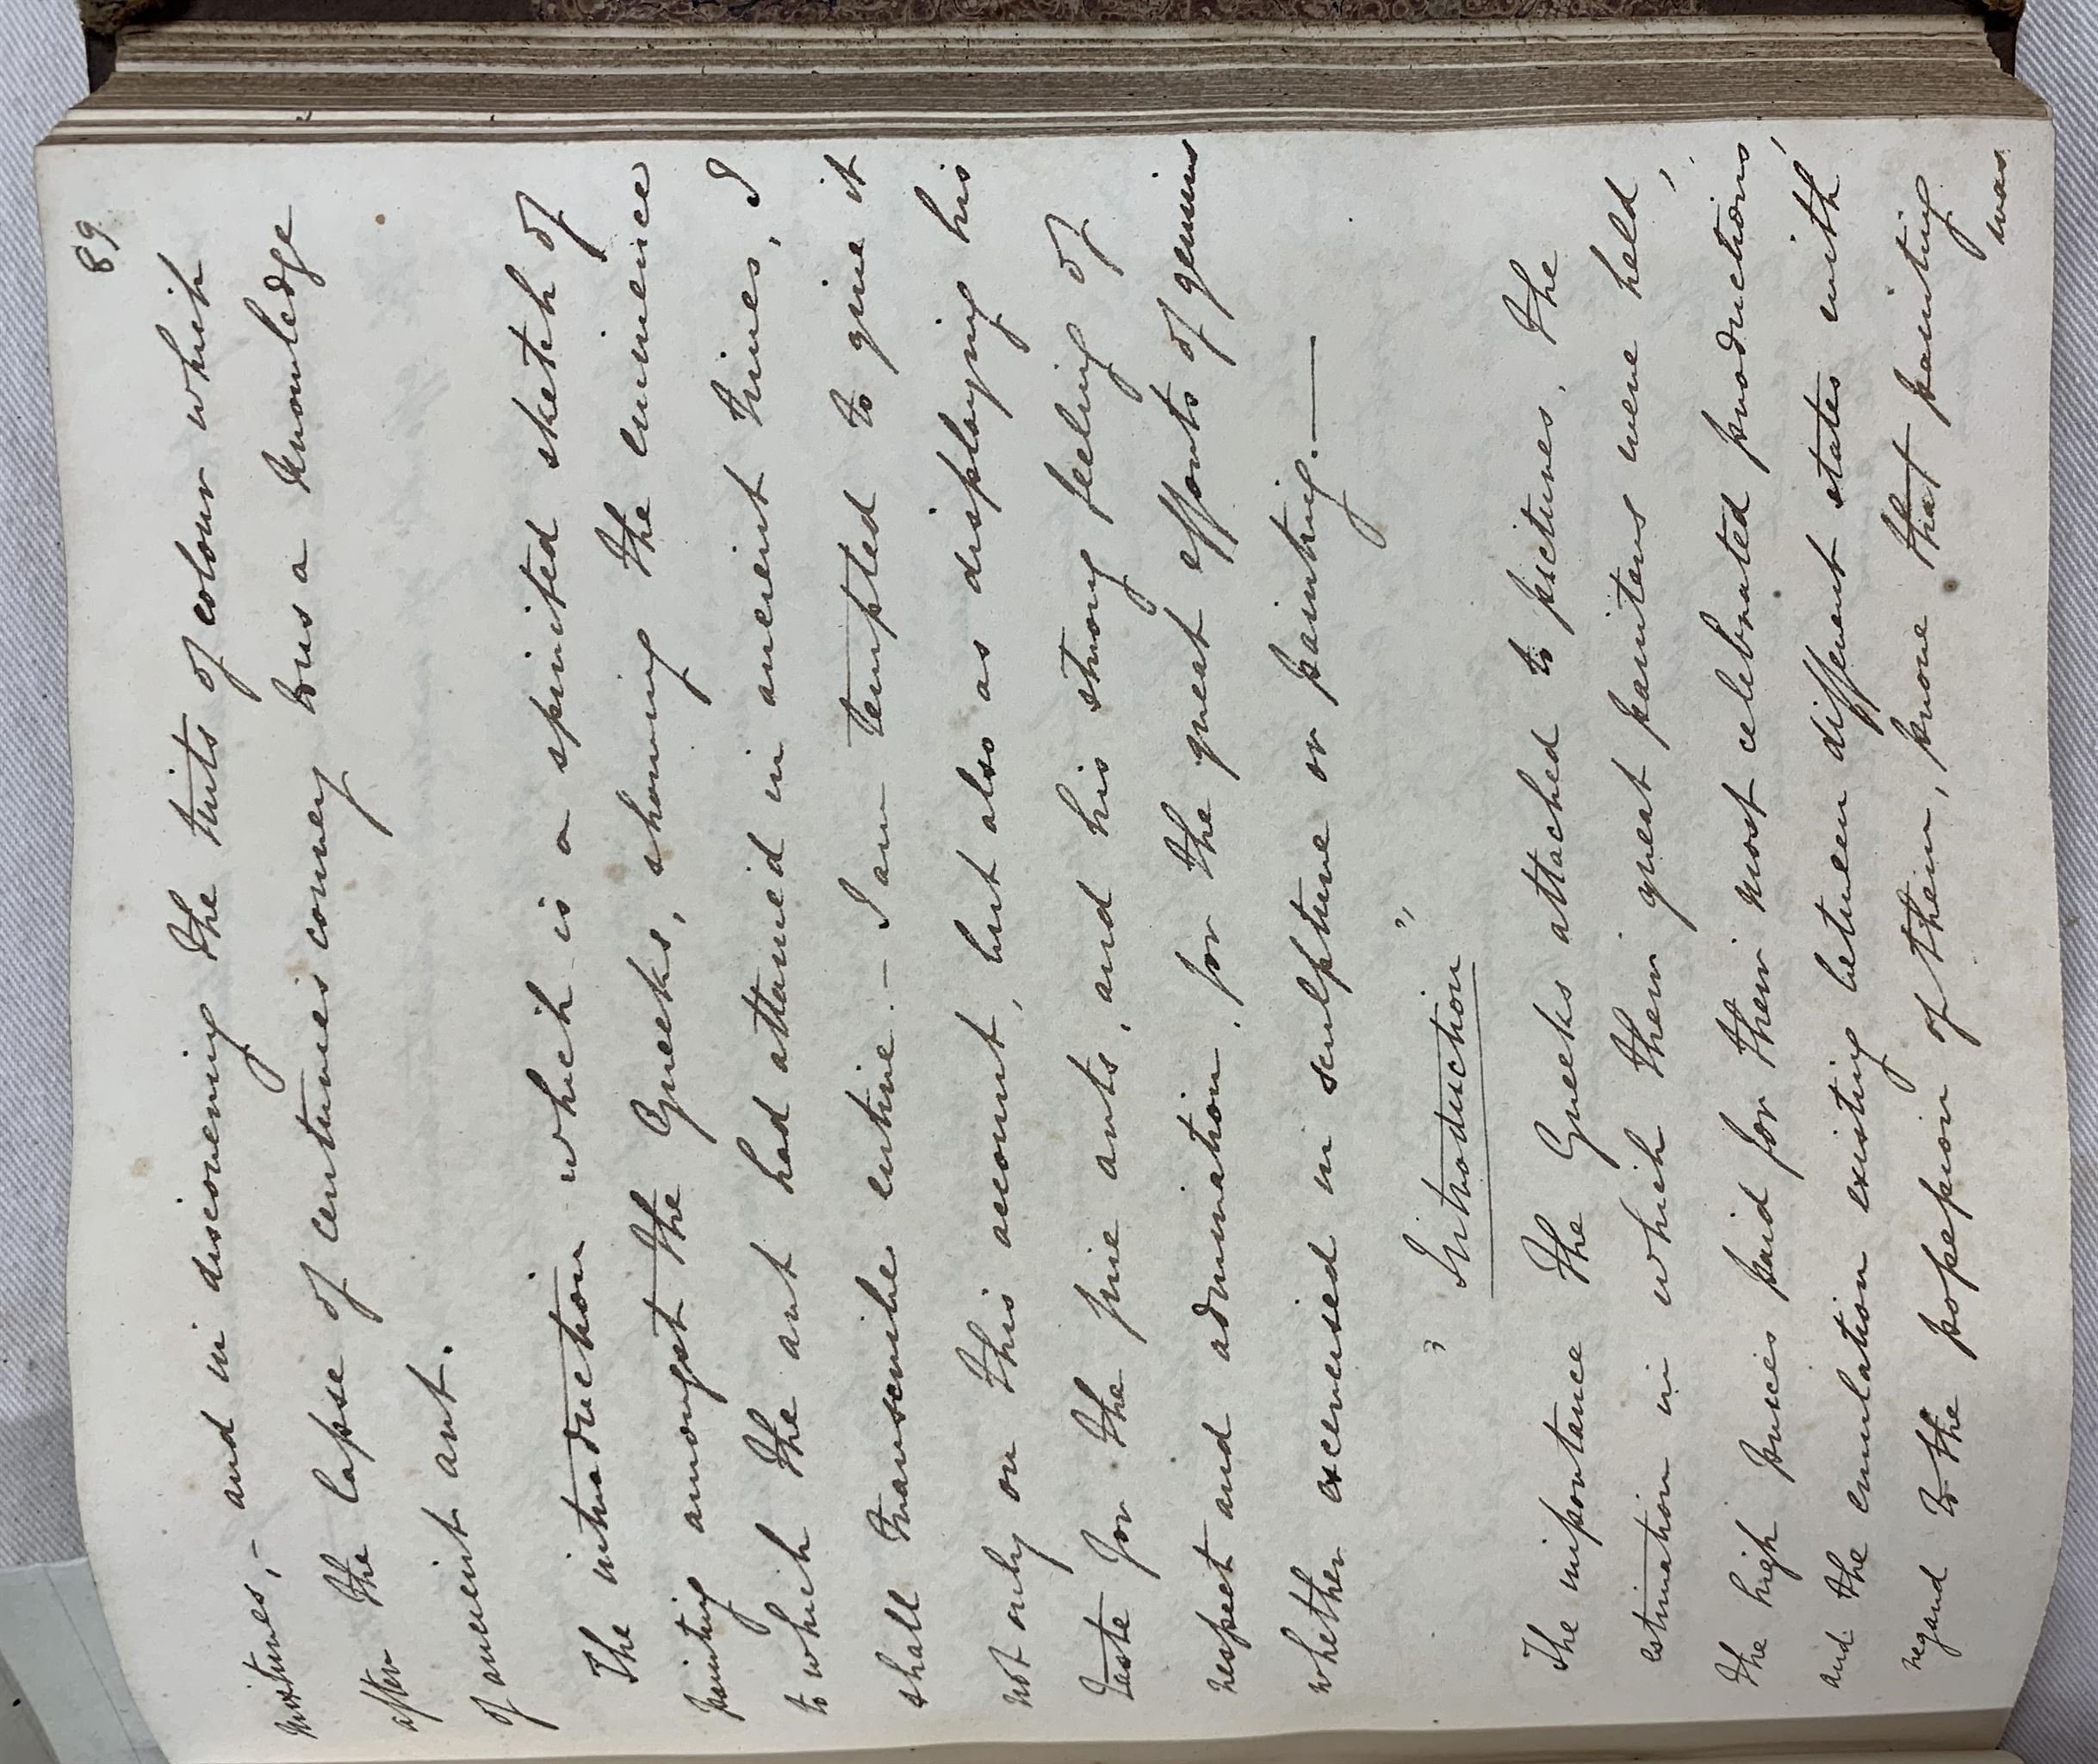 89.
mixtures, – and in discovering the tints of colour which
after the lapse of centuries convey to us a knowledge
of ancient art.
The introduction which is a spirited sketch of
painting amongst the Greeks, showing the eminence
to which the art had attained in ancient times, I
shall transcribe entire. – I am tempted to give it
not only on this account, but also as displaying his
taste for the fine arts, and his strong feeling of
respect and admiration, for the great efforts of genius
whether exercised in sculpture or painting. —
" Introduction "
The importance the Greeks attached to pictures, the
estimation in which their great painters were held,
the high prices paid for their most celebrated productions,
and the emulation existing between different states with
regard to the possession of them, prove that painting
was